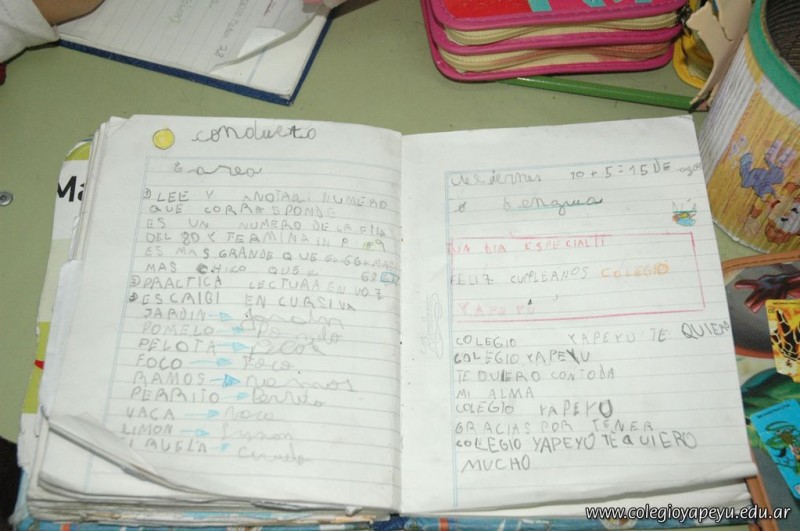 conducta
Tarea
1) LEE Y ANOTA: NUMERO
QUE CORRASPONDE
ES UN NUMERO DE LA FILA
DEL 80 Y TERMINA IN
ES MAS GRANDE QUE
MAS CHICO QUE
2) PRACTICA LECTURA EN VOZ
3) ESCRIBI EN CURSIVA
JARDIN → Jardin
POMELO → Pomelo
PELOTA → Pelota
FOCO → Foco
RAMOS → ramos
PERRITO → Perrito
VACA → vaca
LIMON → Limon
CIRUELA → Ciruela
viernes 10 + 5 = 15 DE
Lengua
UN DIA ESPECIAL!!
FELIZ CUMPLEAÑOS COLEGIO
YAPEYU
COLEGIO YAPEYU TE QUIERO
COLEGIO YAPEYU
TE QUIERO CON TODA
MI ALMA
COLEGIO YAPEYU
GRACIAS POR TENER
COLEGIO YAPEYU TE QUIERO
MUCHO
Ma
www.colegioyapeyu.edu.ar